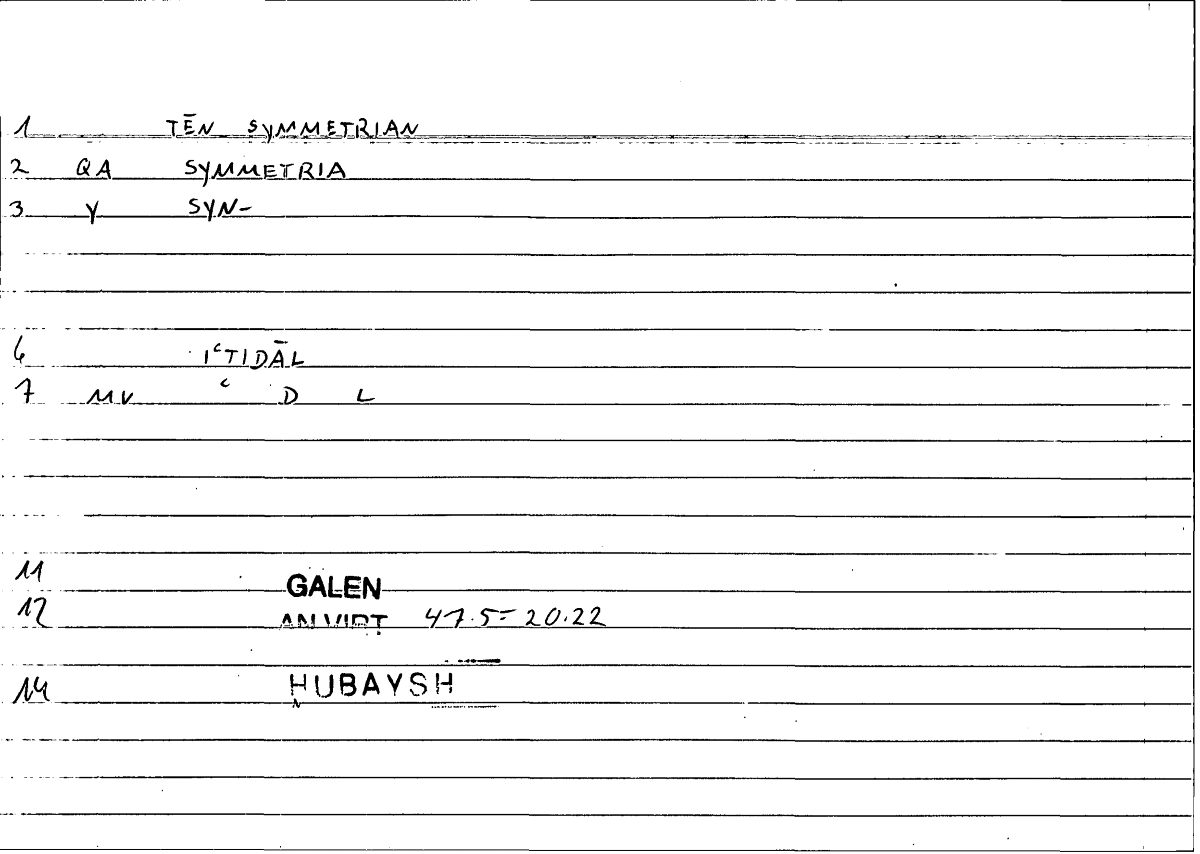 1 TĒN SYMMETRIAN
2 QA SYMMETRIA
3 Y SYN-
6 IʿTIDĀL
7 MV ʿ D L
11 GALEN
12 AN VIRT 47.5 = 20.22
14 ḤUBAYSH